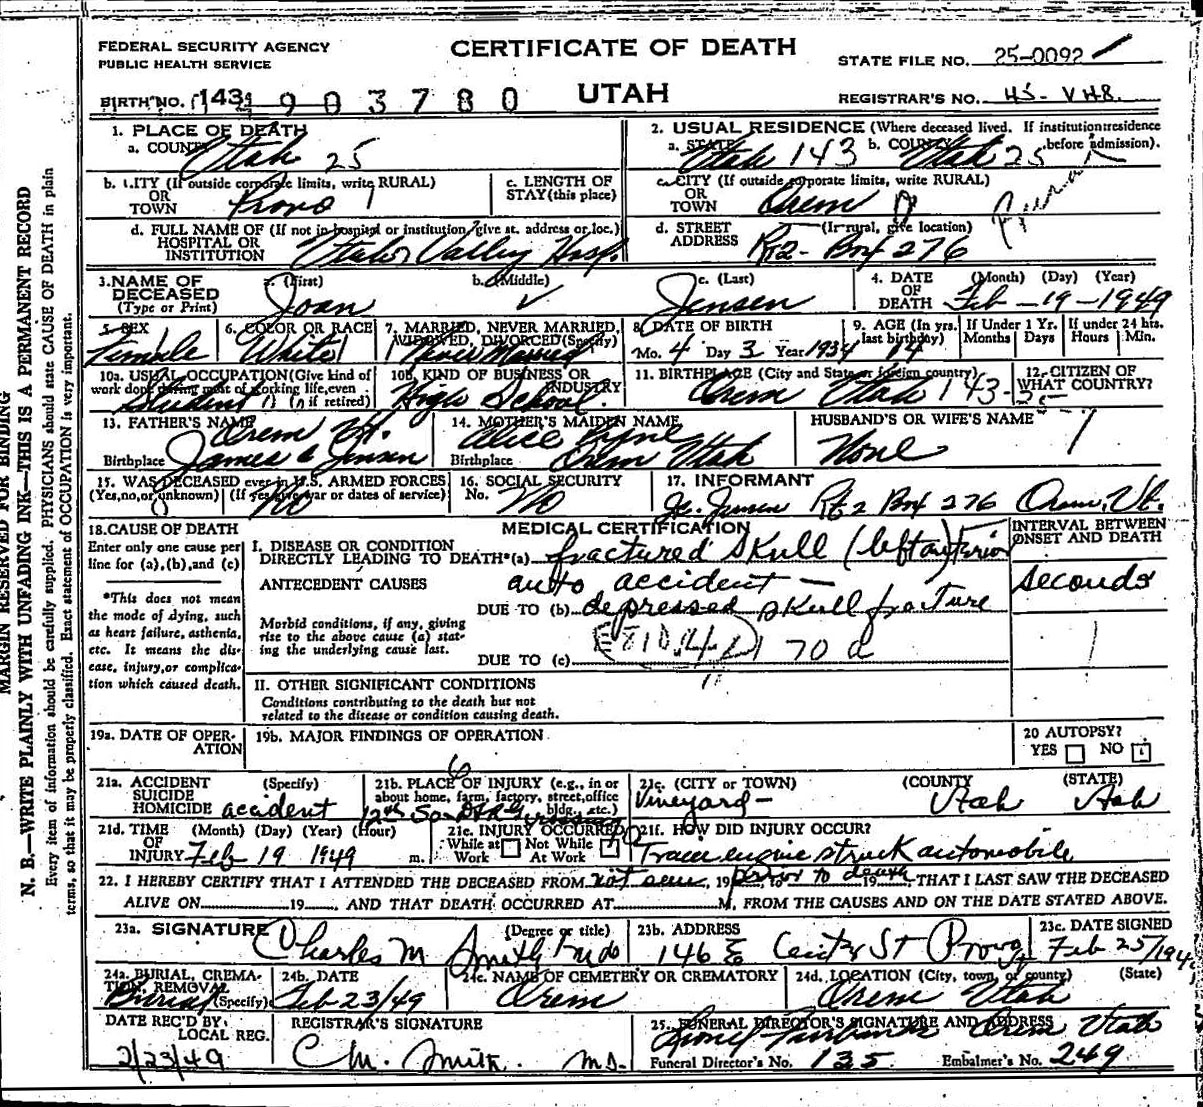 FEDERAL SECURITY AGENCY
PUBLIC HEALTH SERVICE
CERTIFICATE OF DEATH
STATE FILE NO. 25-0092
BIRTH NO. 143 4903780
UTAH
REGISTRAR'S NO. 45- V H R.
MARGIN RESERVED FOR BINDING
N. B.—WRITE PLAINLY WITH UNFADING INK—THIS IS A PERMANENT RECORD
Every item of information should be carefully supplied. PHYSICIANS should state CAUSE OF DEATH in plain
terms, so that it may be properly classified. Exact statement of OCCUPATION is very important.
1. PLACE OF DEATH
a. COUNTY Utah 25
2. USUAL RESIDENCE (Where deceased lived. If institution: residence before admission).
a. STATE Utah 143 b. COUNTY Utah 25
b. CITY (If outside corporate limits, write RURAL) OR TOWN Provo 1
c. LENGTH OF STAY (this place)
c. CITY (If outside corporate limits, write RURAL) OR TOWN Orem
Rural
d. FULL NAME OF (If not in hospital or institution, give st. address or loc.) HOSPITAL OR INSTITUTION Utah Valley Hosp.
d. STREET ADDRESS (If rural, give location) Rt 2 - Box 276
3. NAME OF DECEASED (Type or Print)
a. (First) Joan
b. (Middle)
c. (Last) Jensen
4. DATE OF DEATH (Month) (Day) (Year) Feb - 19 - 1949
5. SEX Female
6. COLOR OR RACE White
7. MARRIED, NEVER MARRIED, WIDOWED, DIVORCED (Specify) Never Married
8. DATE OF BIRTH Mo. 4 Day 3 Year 1934
9. AGE (In yrs. last birthday) 14
If Under 1 Yr. Months Days
If under 24 hrs. Hours Min.
10a. USUAL OCCUPATION (Give kind of work done during most of working life, even if retired) Student
10B. KIND OF BUSINESS OR INDUSTRY High School.
11. BIRTHPLACE (City and State or foreign country) Orem Utah 143-25
12. CITIZEN OF WHAT COUNTRY?
13. FATHER'S NAME James C Jensen
Birthplace Orem Ut.
14. MOTHER'S MAIDEN NAME Alice Pyne
Birthplace Orem Utah
HUSBAND'S OR WIFE'S NAME None
15. WAS DECEASED ever in U.S. ARMED FORCES (Yes, no, or unknown) (If yes give war or dates of service) No
16. SOCIAL SECURITY No. No
17. INFORMANT J.C. Jensen Rt 2 Box 276 Orem, Ut.
18. CAUSE OF DEATH
Enter only one cause per line for (a), (b), and (c)
*This does not mean the mode of dying, such as heart failure, asthenia, etc. It means the disease, injury, or complication which caused death.
MEDICAL CERTIFICATION
INTERVAL BETWEEN ONSET AND DEATH
I. DISEASE OR CONDITION DIRECTLY LEADING TO DEATH*(a) fractured skull (left
ANTECEDENT CAUSES auto accident —
seconds
DUE TO (b) depressed skull fracture
Morbid conditions, if any, giving rise to the above cause (a) stating the underlying cause last.
E810.4 170 a
DUE TO (c)
II. OTHER SIGNIFICANT CONDITIONS
Conditions contributing to the death but not related to the disease or condition causing death.
19a. DATE OF OPERATION
19b. MAJOR FINDINGS OF OPERATION
20 AUTOPSY? YES NO
21a. ACCIDENT SUICIDE HOMICIDE (Specify) accident
21b. PLACE OF INJURY (e.g., in or about home, farm, factory, street, office bldg., etc.) 12th So - D&RG crossing
6
21c. (CITY or TOWN) Vineyard - (COUNTY) Utah (STATE) Utah
21d. TIME OF INJURY (Month) (Day) (Year) (Hour) Feb 19 1949 m.
21e. INJURY OCCURRED While at Work Not While At Work
21f. HOW DID INJURY OCCUR? Train engine struck automobile
22. I HEREBY CERTIFY THAT I ATTENDED THE DECEASED FROM not seen, 19 prior to death 19, THAT I LAST SAW THE DECEASED
ALIVE ON 19, AND THAT DEATH OCCURRED AT M, FROM THE CAUSES AND ON THE DATE STATED ABOVE.
23a. SIGNATURE (Degree or title) Charles M Smith
23b. ADDRESS 146 E Center St Provo
23c. DATE SIGNED Feb 25/194
24a. BURIAL, CREMATION, REMOVAL (Specify) Burial
24b. DATE Feb 23/49
24c. NAME OF CEMETERY OR CREMATORY Orem
24d. LOCATION (City, town, or county) (State) Orem Utah
DATE REC'D BY LOCAL REG. 2/23/49
REGISTRAR'S SIGNATURE C M. Smith. MD.
25. FUNERAL DIRECTOR'S SIGNATURE AND ADDRESS Orem Utah
Funeral Director's No. 135
Embalmer's No. 249